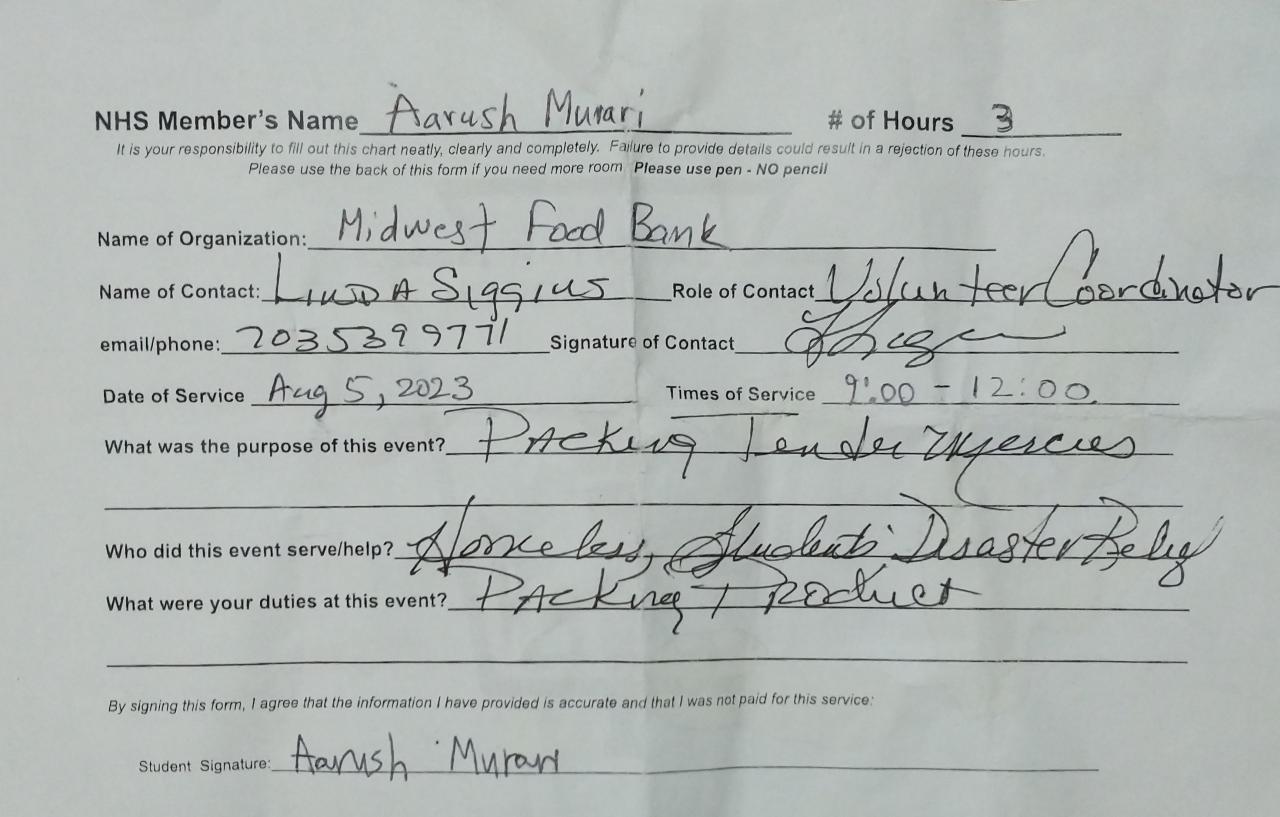 NHS Member's Name Aarush Murari # of Hours 3
It is your responsibility to fill out this chart neatly, clearly and completely. Failure to provide details could result in a rejection of these hours.
Please use the back of this form if you need more room Please use pen - NO pencil
Name of Organization: Midwest Food Bank
Name of Contact: LINDA Siggins Role of Contact Volunteer Coordinator
email/phone: 2035399771 Signature of Contact
Date of Service Aug 5, 2023 Times of Service 9:00 - 12:00
What was the purpose of this event? Packing Tender Mercies
Who did this event serve/help? Homeless, Students Disaster Relief
What were your duties at this event? Packing Product
By signing this form, I agree that the information I have provided is accurate and that I was not paid for this service:
Student Signature: Aarush Murari